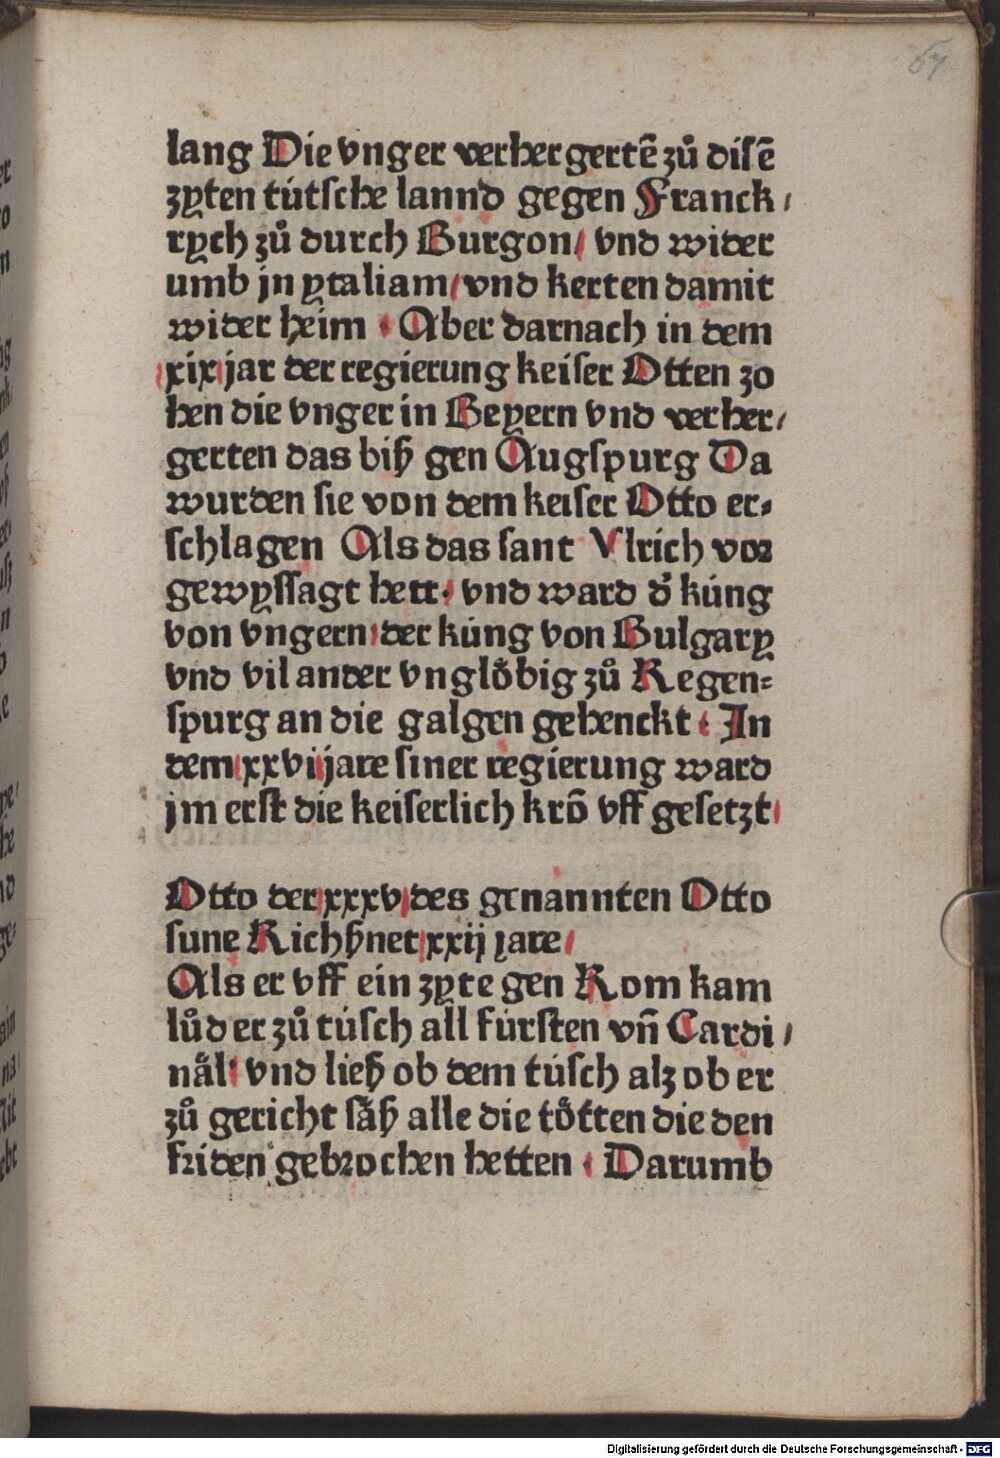 67
lang Die vnger verhergertē zů disē
zyten tútsche lannd gegen Franck/
rych zů durch Burgon/ vnd wider
umb jn ytaliam/ vnd kerten damit
wider heim · Aber darnach in dem
/xix/ jar der regierung keiser Otten zo
hen die vnger in Beyern vnd verher/
gerten das biß gen Augspurg Da
wurden sie von dem keiser Otto er⸗
schlagen Als das sant Vlrich vor
gewyssagt hett· vnd ward d̾ kúng
von vngern/ der kúng von Bulgary
vnd vil ander vnglo̊big zů Regen⸗
spurg an die galgen gehenckt · In
dem/ xxvij/ jare siner regierung ward
jm erst die keiserlich krō vff gesetzt/
Otto der/ xxxv/ des genannten Otto
sune Richßnet/ xxij jare/
Als er vff ein zyte gen Rom kam
lůd er zů túsch all fúrsten vn̄ Cardi/
nål/ vnd ließ ob dem túsch alz ob er
zů gericht såß alle die to̊tten die den
friden gebrochen hetten · Darumb
Digitalisierung gefördert durch die Deutsche Forschungsgemeinschaft - DFG